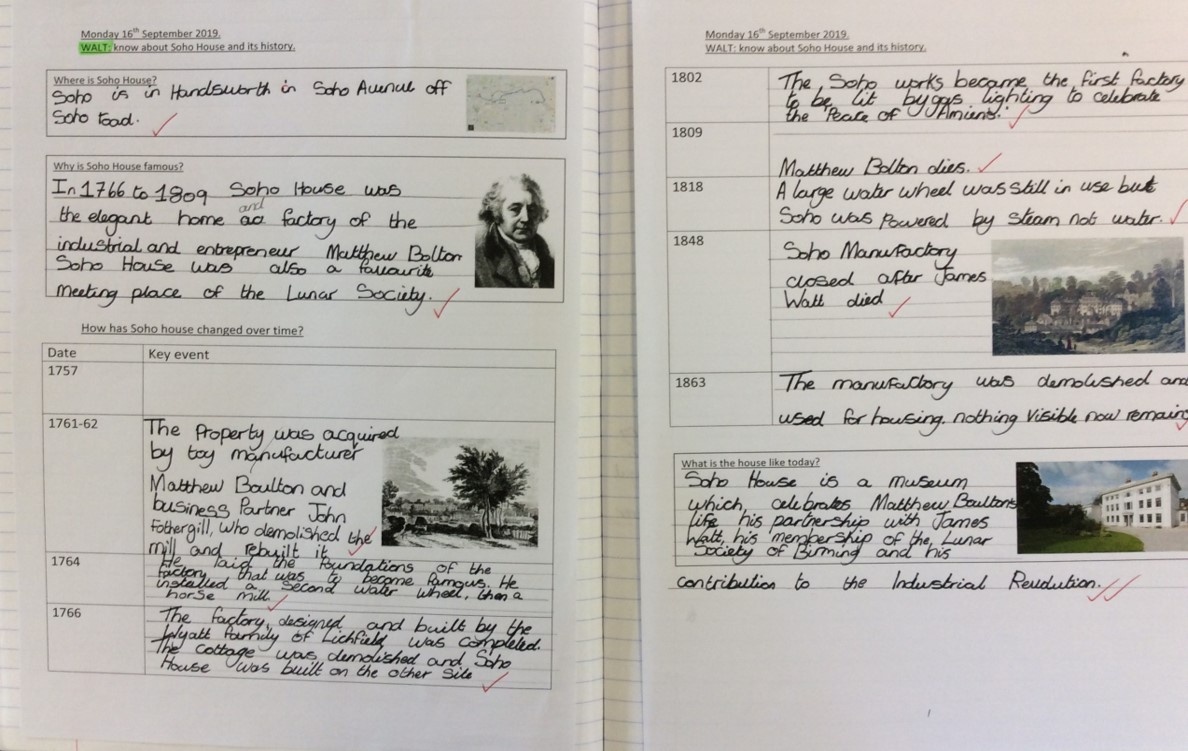 Monday 16th September 2019.
WALT: know about Soho House and its history.
Where is Soho House?
Soho is in Handsworth in Soho Avenue off
Soho toad.
Why is Soho House famous?
In 1766 to 1809 Soho House was
and
the elegant home ao factory of the
industrial and entrepreneur Matthew Bolton
Soho House was also a favourite
meeting place of the Lunar Society.
How has Soho house changed over time?
Date Key event
1757
1761-62 The Property was acquired
by toy manufacturer
Matthew Boulton and
business Partner John
fothergill, who demolished the
mill and rebuilt it
1764 He laid the foundations of the
factory that was to become famous. He
installed a second water wheel, then a
horse mill.
1766 The factory, designed and built by the
Wyatt family of Lichfield was completed.
The cottage was demolished and Soho
House was built on the other Site
Monday 16th September 2019.
WALT: know about Soho House and its history.
1802 The Soho works became the first factory
to be lit by gas lighting to celebrate
the 'Peace of Amiens.'
1809
Matthew Bolton dies.
1818 A large water wheel was still in use but
Soho was Powered by steam not water.
1848 Soho Manufactory
closed after James
Watt died
1863 The manufactory was demolished and
used for housing. nothing visible now remain
What is the house like today?
Soho House is a museum
which celebrates Matthew Boulton's
life his partnership with James
Watt, his membership of the, Lunar
Society of Birming and his
contribution to the Industrial Revolution.